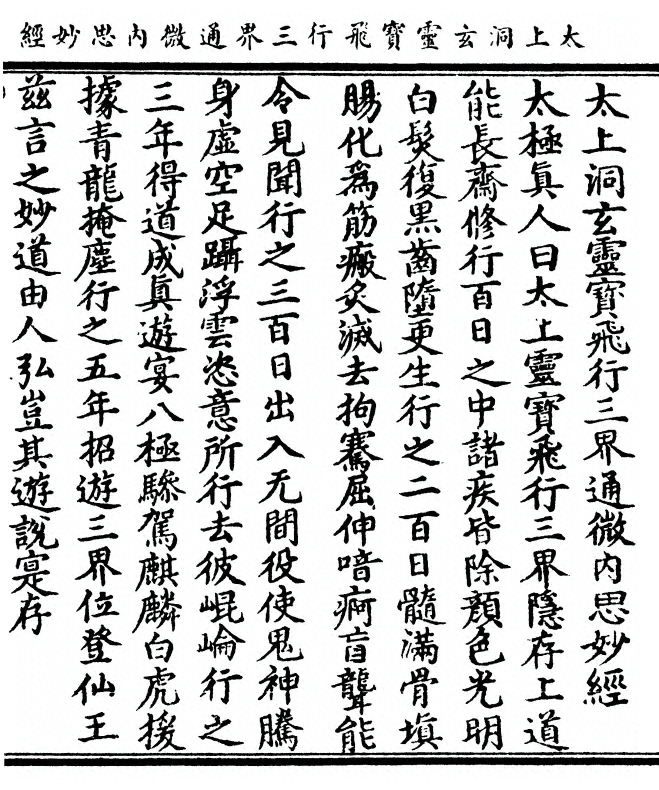 太上洞玄靈寶飛行三界通微內思妙經
太上洞玄靈寶飛行三界通微內思妙經
太極眞人曰太上靈寶飛行三界隱存上道
能長齋修行百日之中諸疾皆除顏色光明
白髮復黑齒墮更生行之二百日髓滿骨塡
腸化爲筋瘢炙滅去拘騫屈伸喑痾盲聾能
令見聞行之三百日出入无間役使鬼神騰
身虛空足躡浮雲恣意所行去彼崐崘行之
三年得道成眞遊宴八極驂駕麒麟白虎援
據青龍掩塵行之五年招遊三界位登仙王
茲言之妙道由人弘豈其遊說寔存